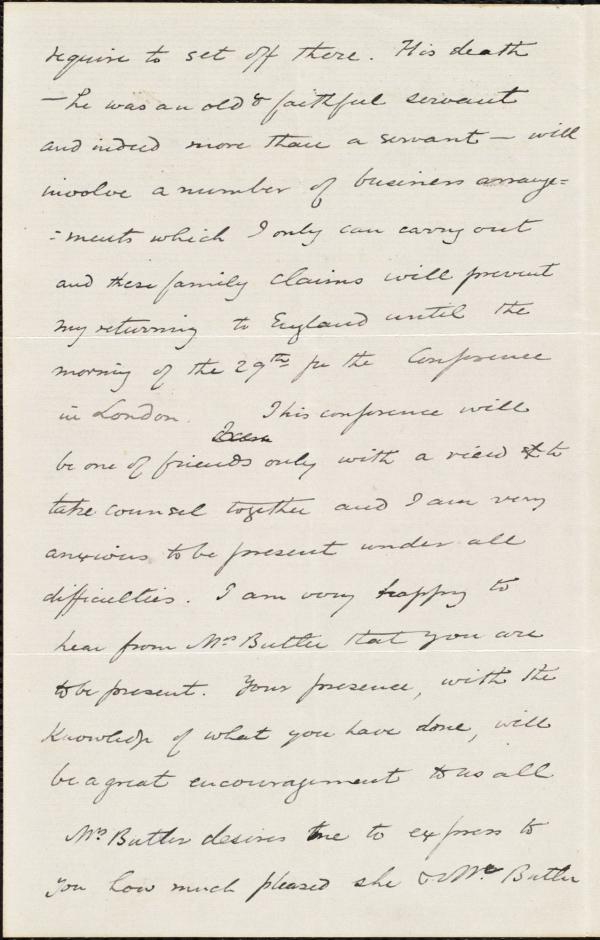 require to set off there. His death
— he was an old & faithful servant
and indeed more than a servant — will
involve a number of business arrange=
=ments which I only can carry out
and these family claims will prevent
my returning to England until the
morning of the 29th for the Conference
in London. This conference will
be one of friends only with a view to
take counsel together and I am very
anxious to be present under all
difficulties. I am very happy to
hear from Mrs Butler that you are
to be present. Your presence, with the
knowledge of what you have done, will
be a great encouragement to us all
Mrs Butler desires me to express to
you how much pleased she & Mr Butler